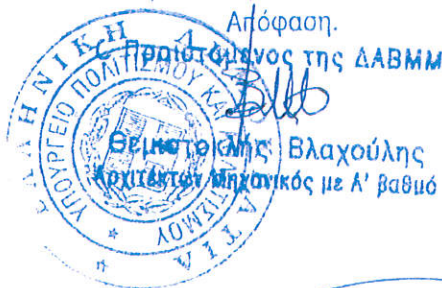 Απόφαση.
Ο Προϊστάμενος της ΔΑΒΜΜ
Θεμιστοκλής Βλαχούλης
Αρχιτέκτων Μηχανικός με Α' βαθμό
ΕΛΛΗΝΙΚΗ ΔΗΜΟΚΡΑΤΙΑ
ΥΠΟΥΡΓΕΙΟ ΠΟΛΙΤΙΣΜΟΥ ΚΑΙ